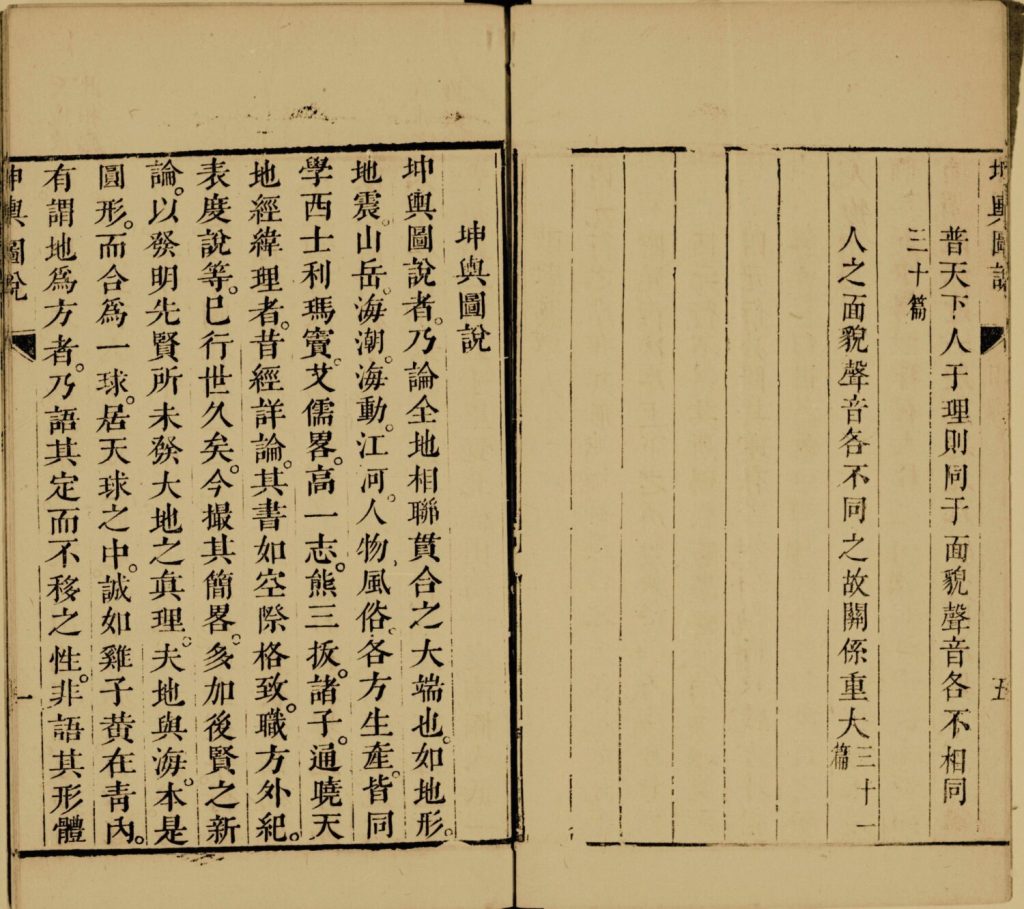 坤輿圖說
五
普天下人于理則同于面貌聲音各不相同
三十篇
人之面貌聲音各不同之故關係重大三十一
篇
坤輿圖說
坤輿圖說者。乃論全地相聯貫合之大端也。如地形。
地震。山岳。海潮。海動。江河。人物風俗。各方生產。皆同
學西士利瑪竇。艾儒畧。高一志。熊三拔。諸子。通曉天
地經緯理者。昔經詳論。其書如空際格致。職方外紀。
表度說等。已行世久矣。今撮其簡畧。多加後賢之新
論。以發明先賢所未發大地之真理。夫地與海。本是
圓形。而合為一球。居天球之中。誠如雞子黃在青內。
有謂地為方者。乃語其定而不移之性。非語其形體
坤輿圖說
一